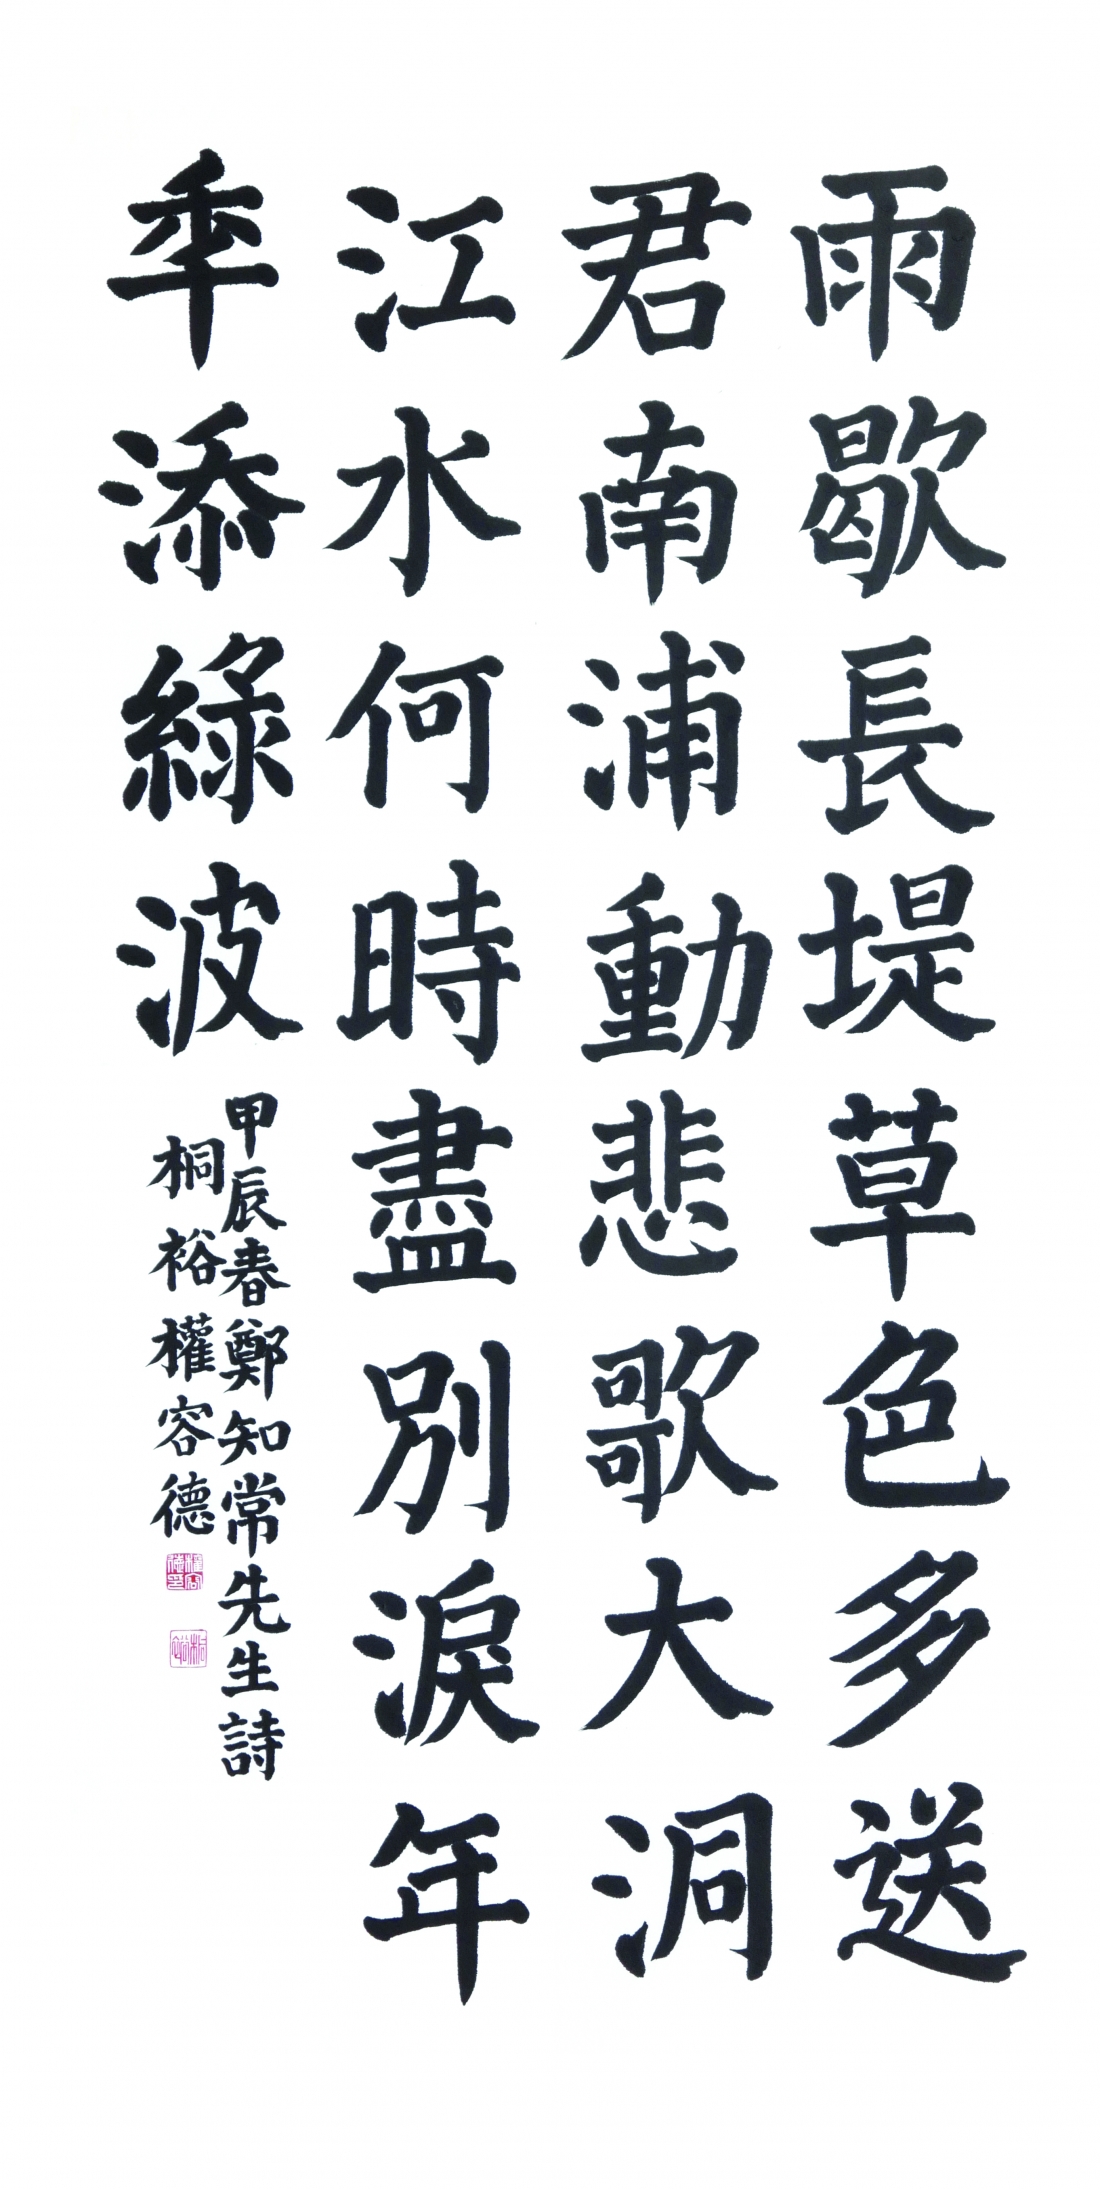 雨歇長堤草色多送
君南浦動悲歌大洞
江水何時盡別淚年
年添綠波
甲辰春鄭知常先生詩
桐裕權容德